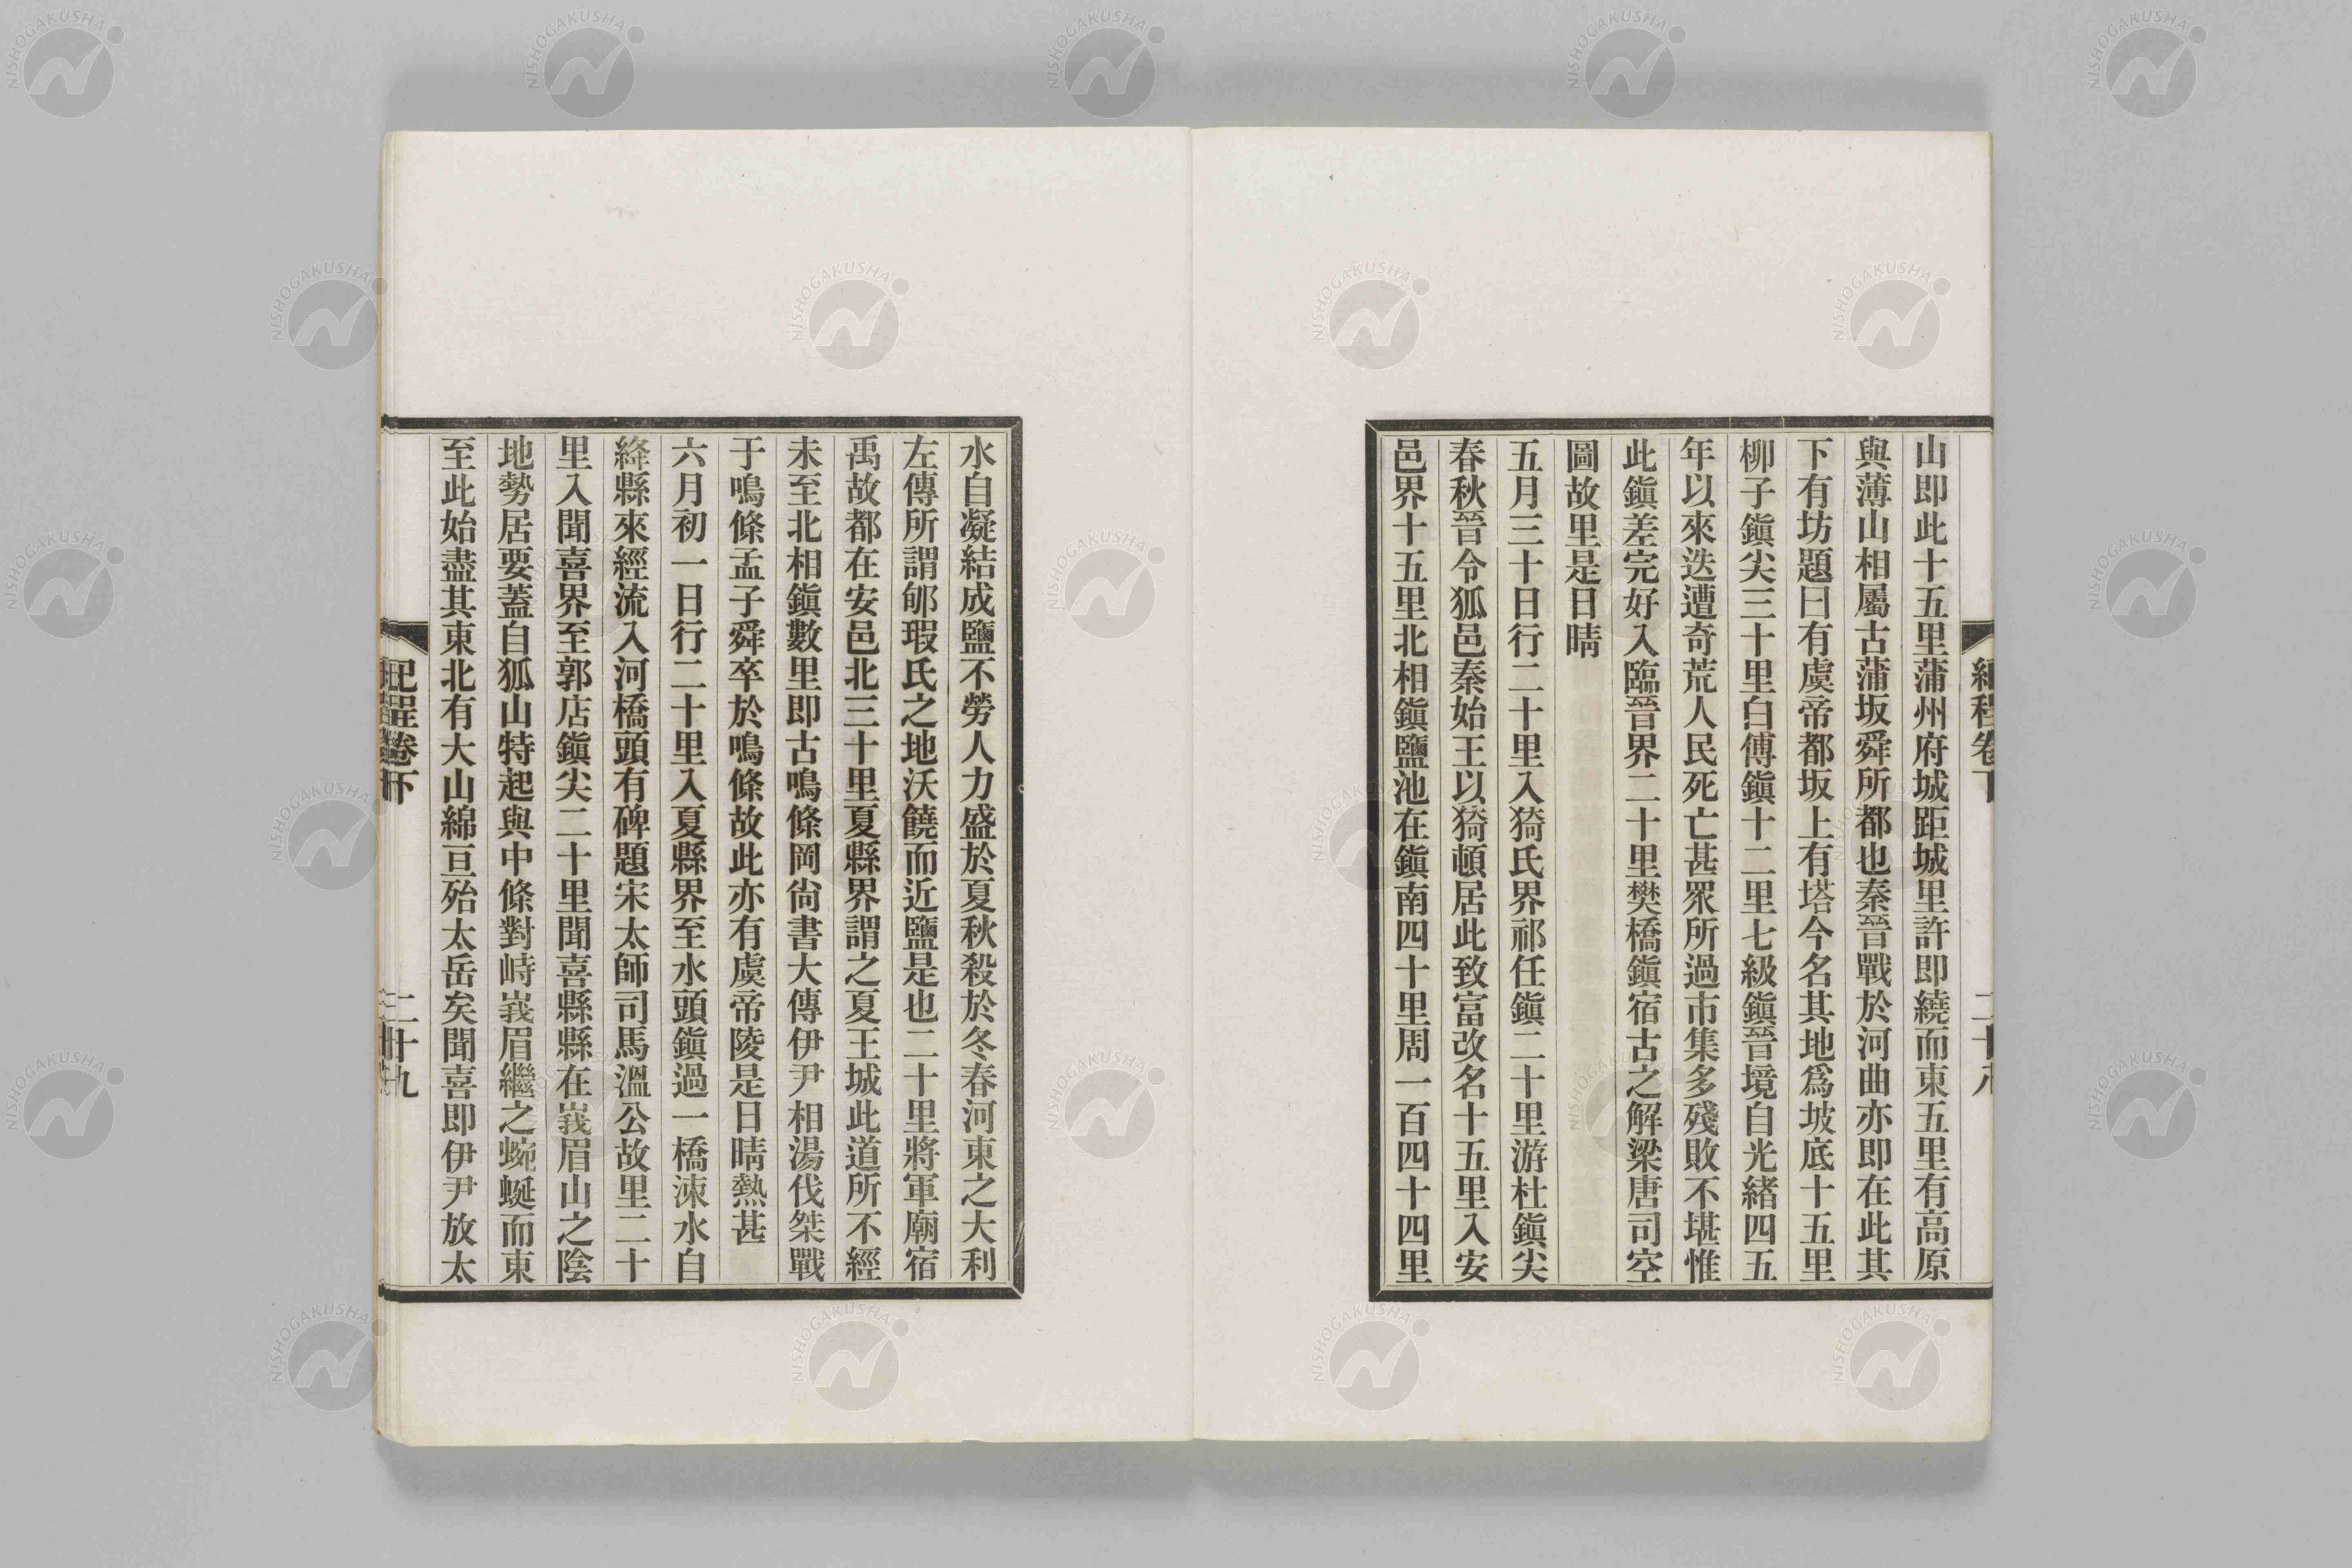 山即此十五里蒲州府城距城里許即繞而東五里有高原
與薄山相屬古蒲坂舜所都也秦晉戰於河曲亦即在此其
下有坊題曰有虞帝都坂上有塔今名其地爲坡底十五里
柳子鎭尖三十里白傅鎭十二里七級鎭晉境自光緒四五
年以來迭遭奇荒人民死亡甚眾所過市集多殘敗不堪惟
此鎭差完好入臨晉界二十里樊橋鎭宿古之解梁唐司空
圖故里是日晴
五月三十日行二十里入猗氏界祁任鎭二十里游杜鎭尖
春秋晉令狐邑秦始王以猗頓居此致富改名十五里入安
邑界十五里北相鎭鹽池在鎭南四十里周一百四十四里
水自凝結成鹽不勞人力盛於夏秋殺於冬春河東之大利
左傳所謂郇瑕氏之地沃饒而近鹽是也二十里將軍廟宿
禹故都在安邑北三十里夏縣界謂之夏王城此道所不經
未至北相鎭數里即古鳴條岡尙書大傳伊尹相湯伐桀戰
于鳴條孟子舜卒於鳴條故此亦有虞帝陵是日晴熱甚
六月初一日行二十里入夏縣界至水頭鎭過一橋涑水自
絳縣來經流入河橋頭有碑題宋太師司馬溫公故里二十
里入聞喜界至郭店鎭尖二十里聞喜縣縣在峩眉山之陰
地勢居要蓋自狐山特起與中條對峙峩眉繼之蜿蜒而東
至此始盡其東北有大山綿亘殆太岳矣聞喜即伊尹放太
卷下
二十九
NISHOGAKUSHA